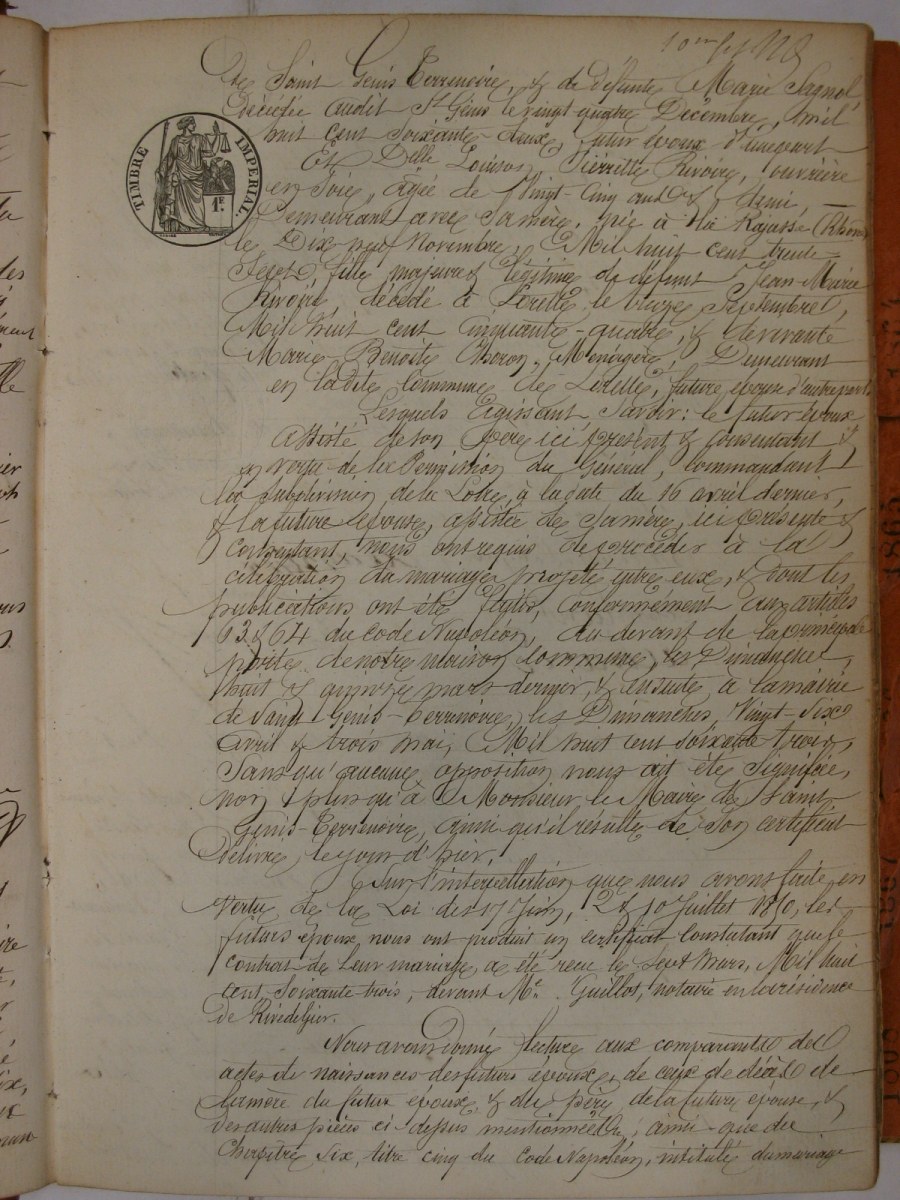 de Saint Genis Terrenoire, & de défunte Marie Sagnol
Décédée audit St Génis le vingt quatre Décembre, mil
huit cent soixante-deux, futur époux d'une part
Et Delle Louison Pierrette Rivoire, ouvrière
en soie, âgée de Vingt-Cinq ans & demi, —
Demeurant avec sa mère, née à (Rhône)
le Dix neuf Novembre, Mil huit cent trente
Sept, fille majeure & légitime de défunt Jean-Marie
Rivoire, décédé à Lorette le Septembre,
Mil huit cent Cinquante-quatre, & de vivante
Marie Benoite Ménagère, Demeurant
en ladite Commune de Lorette, future épouse d'autre part
Lesquels agissant Savoir: le futur époux
Assisté de son père ici présent & consentant &
en vertu de la Permission du Général, commandant
la subdivision de la Loire, à la date du 16 avril dernier,
& la future épouse, assistée de sa mère, ici présente &
consentant, nous ont requis de procéder à la
célébration du mariage projeté entre eux, & dont les
publications ont été faites, conformément aux articles
63 & 64 du Code Napoléon, au devant de la principale
porte de notre maison commune, les Dimanches,
huit & quinze mars dernier, & ensuite à la mairie
de Saint Genis-Terrenoire, les Dimanches Vingt-Six
avril & trois mai, Mil huit cent soixante trois,
Sans qu'aucune opposition nous ait été signifiée,
non plus qu'à Monsieur le Maire de Saint
Genis-Terrenoire, ainsi qu'il résulte de son certificat
Délivré le jour d'hier.
Sur l'interpellation que nous avons faite en
Vertu de la Loi des 17 Juin, 2 & 10 Juillet 1850, les
futurs époux nous ont produit un certificat constatant que le
contrat de leur mariage, a été reçu le sept Mars, Mil huit
cent soixante-trois, devant Me Guillot, notaire en la résidence
de Rivedegier.
Nous avons donné lecture aux comparants des
actes de naissances des futurs époux, de ceux de décès de
la mère du futur époux, & du père de la future épouse, &
des autres pièces ci dessus mentionnées, ainsi que du
Chapitre Six, titre cinq du Code Napoléon, intitulé du mariage
TIMBRE IMPERIAL.
1F.